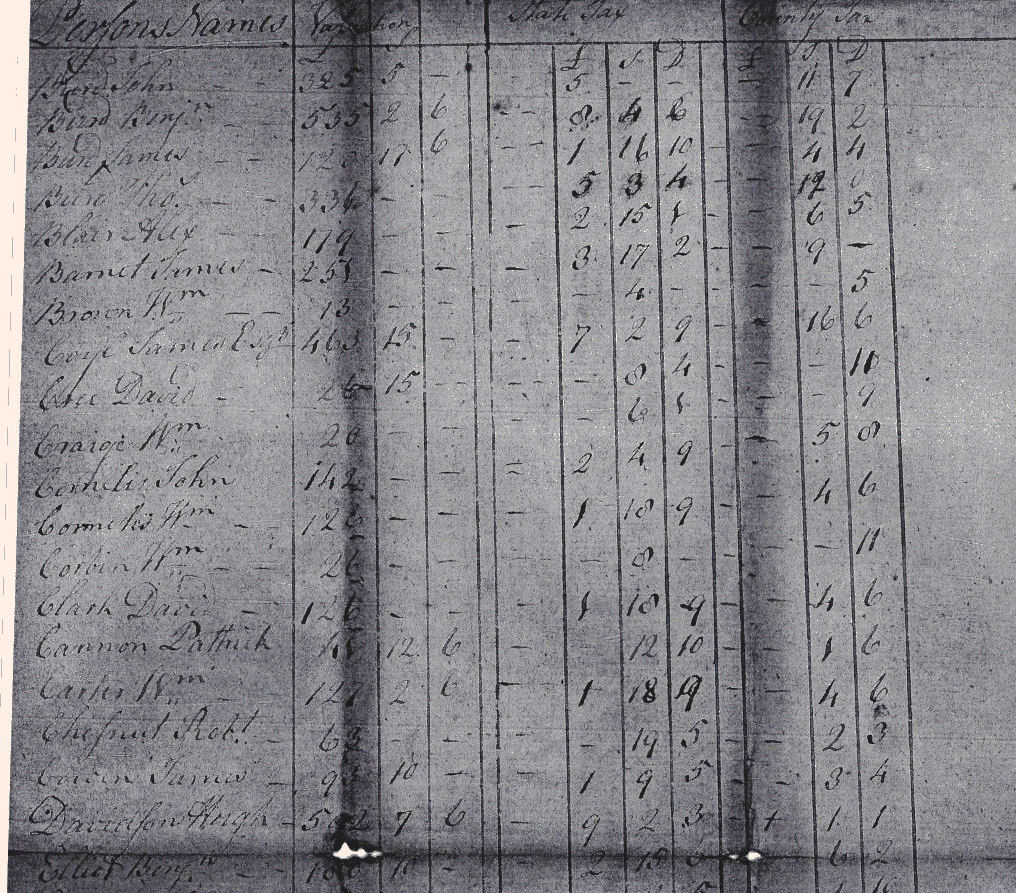 Persons Names Valuation State Tax County Tax
£ S D £ S D
Byrd John - - 325 5 - - - 5 - - - 11 7
Burd Benjn - - 535 2 6 - - 8 4 6 - 19 2
Burd James - - 120 17 6 - - 1 16 10 - 4 4
Burd Thos. - - 336 - - - 5 3 4 - - 12 0
Blair Alex - - 179 - - - 2 15 1 - - 6 5
Barnet James - 251 - - - 3 17 2 - - 9 -
Brown Wm - - 13 - - - - 4 - - - - 5
James Esqr 463 15 - - 7 2 9 - - 16 6
Cree David - 26 15 - - - 8 4 - - - 11
Craige Wm 20 - - - - 6 1 - - - 9
Cornelis John 142 - - = 2 4 9 - - 5 8
Cornelis Wm - - 126 - - - 1 18 9 - - 4 6
Corbin Wm - - 26 - - - - 8 - - - - 11
Clark David - 126 - - - 1 18 9 - - 4 6
Cannon Patrick 12 6 - 12 10 - - 1 6
Carter Wm - - 127 2 6 - 1 18 9 - - 4 6
Chesnut Robt. - 62 - - - - 19 5 - - 2 3
Cowen James - 95 10 - - 1 9 5 - - 3 4
Davidson Hugh - 592 7 6 - 9 2 3 - 1 1 1
Elliot Benjn 180 10 - - 2 15 - - 6 2